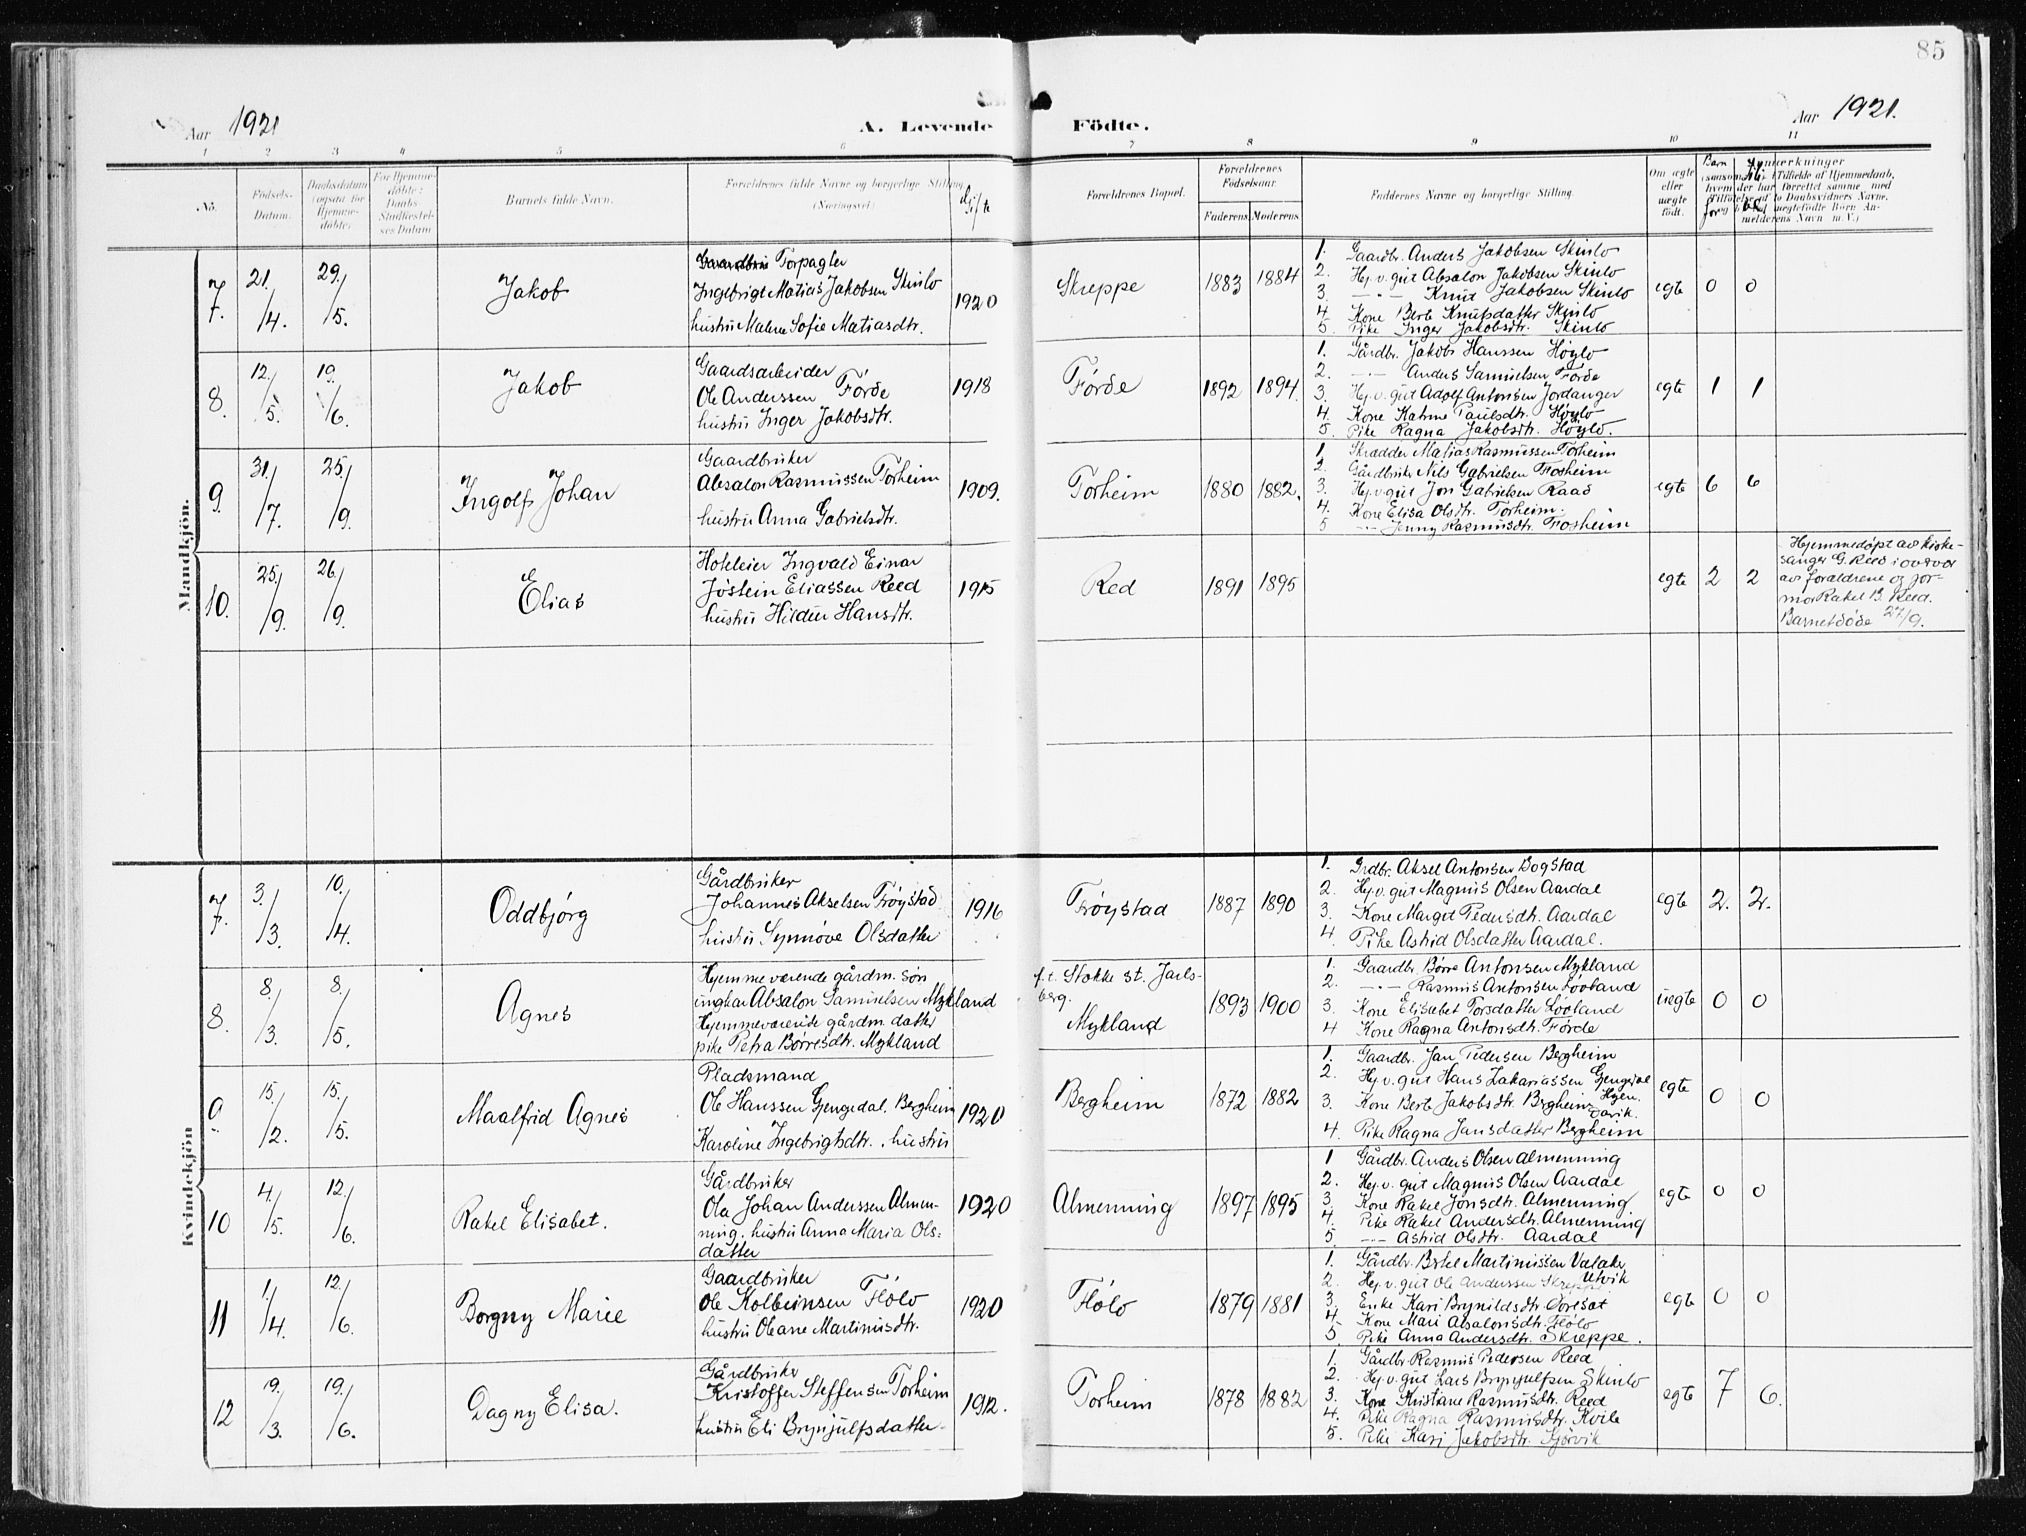 85
Aar 1921
A. Levende Födte.
Aar 1921.
1 2 3 4 5 6 7 8 9 10 11
No.
Födsels-Datum.
Daabsdatum (ogsaa for Hjemme-döbte)
For Hjemme-döbte: Daabs Stadfæstel-ses Datum
Barnets fulde Navn.
Forældrenes fulde Navne og borgerlige Stilling (Næringsvei)
Gifte
Forældrenes Bopæl.
Forældrenes Födselsaar.
Faderens Moderens
Faddernes Navne og borgerlige Stilling.
Om ægte eller uægte födt.
Barn
Anmerkninger
Mandkjön.
7. 21/4. 29/5. Jakob
Gaardbru Forpagter
Ingebrigt Matias Jakobsen Skinlo
hustru Malene Sofie Matiasdtr.
1920 Skreppe 1883 1884
1. Gaardbr. Anders Jakobsen Skinlo
2. Hj.v. gut Absalon Jakobsen Skinlo
3. —"— Knut Jakobsen Skinlo
4. Kone Berte Knutsdatter Skinlo
5. Pike Inger Jakobsdtr. Skinlo
egte 0 0
8. 12/5. 19/6. Jakob
Gaardsarbeider
Ole Anderssen Førde
hustru Inger Jakobsdtr.
1918 Førde 1892 1894.
1. Gårdbr. Jakob Hanssen Høylo
2. —"— Anders Samuelsen Førde
3. Hj.v. gut Adolf Antonsen Jordanger
4. Kone Katrine Paulsdtr. Høylo
5. Pike Ragna Jakobsdtr. Høylo.
egte 1 1
9. 31/7. 25/9. Ingolf Johan
Gaardbruker
Absalon Rasmussen Torheim
hustru Anna Gabrielsdtr.
1909. Torheim 1880 1882.
1. Skrædder Matias Rasmussen Torheim
2. Gårdbruker Nils Gabrielsen Frosheim
3. Hj.v. gut Jon Gabrielsen Raad
4. Kone Elisa Olsdtr. Torheim.
5 —"— Jenny Rasmusdtr. Frosheim
egte 6 6
10. 25/9. 26/9. Elias
Hoteleier Ingvald Einar
Jøstein Eliassen Reed
hustru Hildur Hansdtr.
1915 Red 1891 1895
egte 2 2
Hjemmedøpt av kirke-
sanger G. Reed i overvær
av forældrene og for-
mor Rakel B. Reed.
Barnet døde 27/9.
Kvindekjön
7. 3./3. 10./4. Oddbjørg
Gårdbruker
Johannes Akselsen Frøystad
hustru Synnøve Olsdatter
1916 Frøystad 1887 1890
1. Grdbr. Aksel Antonsen Bogstad
2. Hj.v. gut Magnus Olsen Aardal
3. Kone Margot Pedersdtr. Aardal
4. Pike Astrid Olsdatter Aardal.
egte 2. 2.
8. 8./3. 8./5. Agnes
Hjemmeværende gårdm. søn
ungkar Absalon Samuelsen Mykland
Hjemmeværende gårdm. datter
pike Petra Børresdtr. Mykland
f.t. Stokke st. Jarls-
berg.
Mykland
1893 1900
1. Gaardbr. Børre Antonsen Mykland
2. —"— Rasmus Antonsen Løvland
3. Kone Elisabet Torsdatter Løvland
4 Kone Ragna Antonsdtr. Førde
uegte 0 0
9. 15./2. 15./5. Maalfrid Agnes
Pladsmand
Ole Hanssen Gjengedal. Bergheim
Karoline Ingebrigtsdtr. hustru
1920 Bergheim 1872 1882
1. Gaardbr. Jan Pedersen Bergheim
2. Hj.v. gut Hans Zakariassen Gjengedal
3. Kone Berte Jakobsdtr. Bergheim
4. Pike Ragna Jansdatter Bergheim
egte 0 0
10 4./5. 12./6. Rakel Elisabet.
Gårdbruker
Ola Johan Anderssen Almen-
ning. hustru Anna Maria Ols-
datter
1920 Almenning 1897 1895
1 Gårdbr. Anders Olsen Almenning
2. Hj.v. gut Magnus Olsen Aardal
3. Kone Rakel Jonsdtr. Almenning.
4. Pike Rakel Andersdtr. Almenning
5. —"— Astrid Olsdtr. Aardal
egte 0 0
11 1/4. 12./6. Borgny Marie
Gaardbruker
Ole Kolbeinsen Flølo
hustru Oleane Martinusdtr.
1920 Flølo 1879 1881
1. Gårdbr. Bertel Martinussen Valaker
Utvik
2. Hj.v. gut Ole Anderssen Skreppe
3. Enke Kari Brynildsdtr.
4. Kone Mari Absalonsdtr. Flølo
5. Pike Anna Andersdtr. Skreppe.
egte 0 0
12 19./3. 19./6. Dagny Elisa.
Gårdbruker
Kristoffer Steffensen Torheim
hustru Eli Brynjulfsdatter
1912. Torheim 1878 1882
1. Gårdbr. Rasmus Pedersen Reed
2. Hj.v. gut Lars Brynjulfsen Skinlo
3. Kone Kristiane Rasmusdtr. Reed
4. Pike Ragna Rasmusdtr. Kvile
5. Pike Kari Jakobsdtr. Sjørvik
egte 7 6.